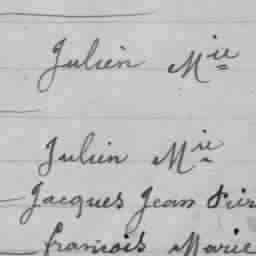 Julien Mie
Julien Mie
Jacques Jean Pier
francois Marie